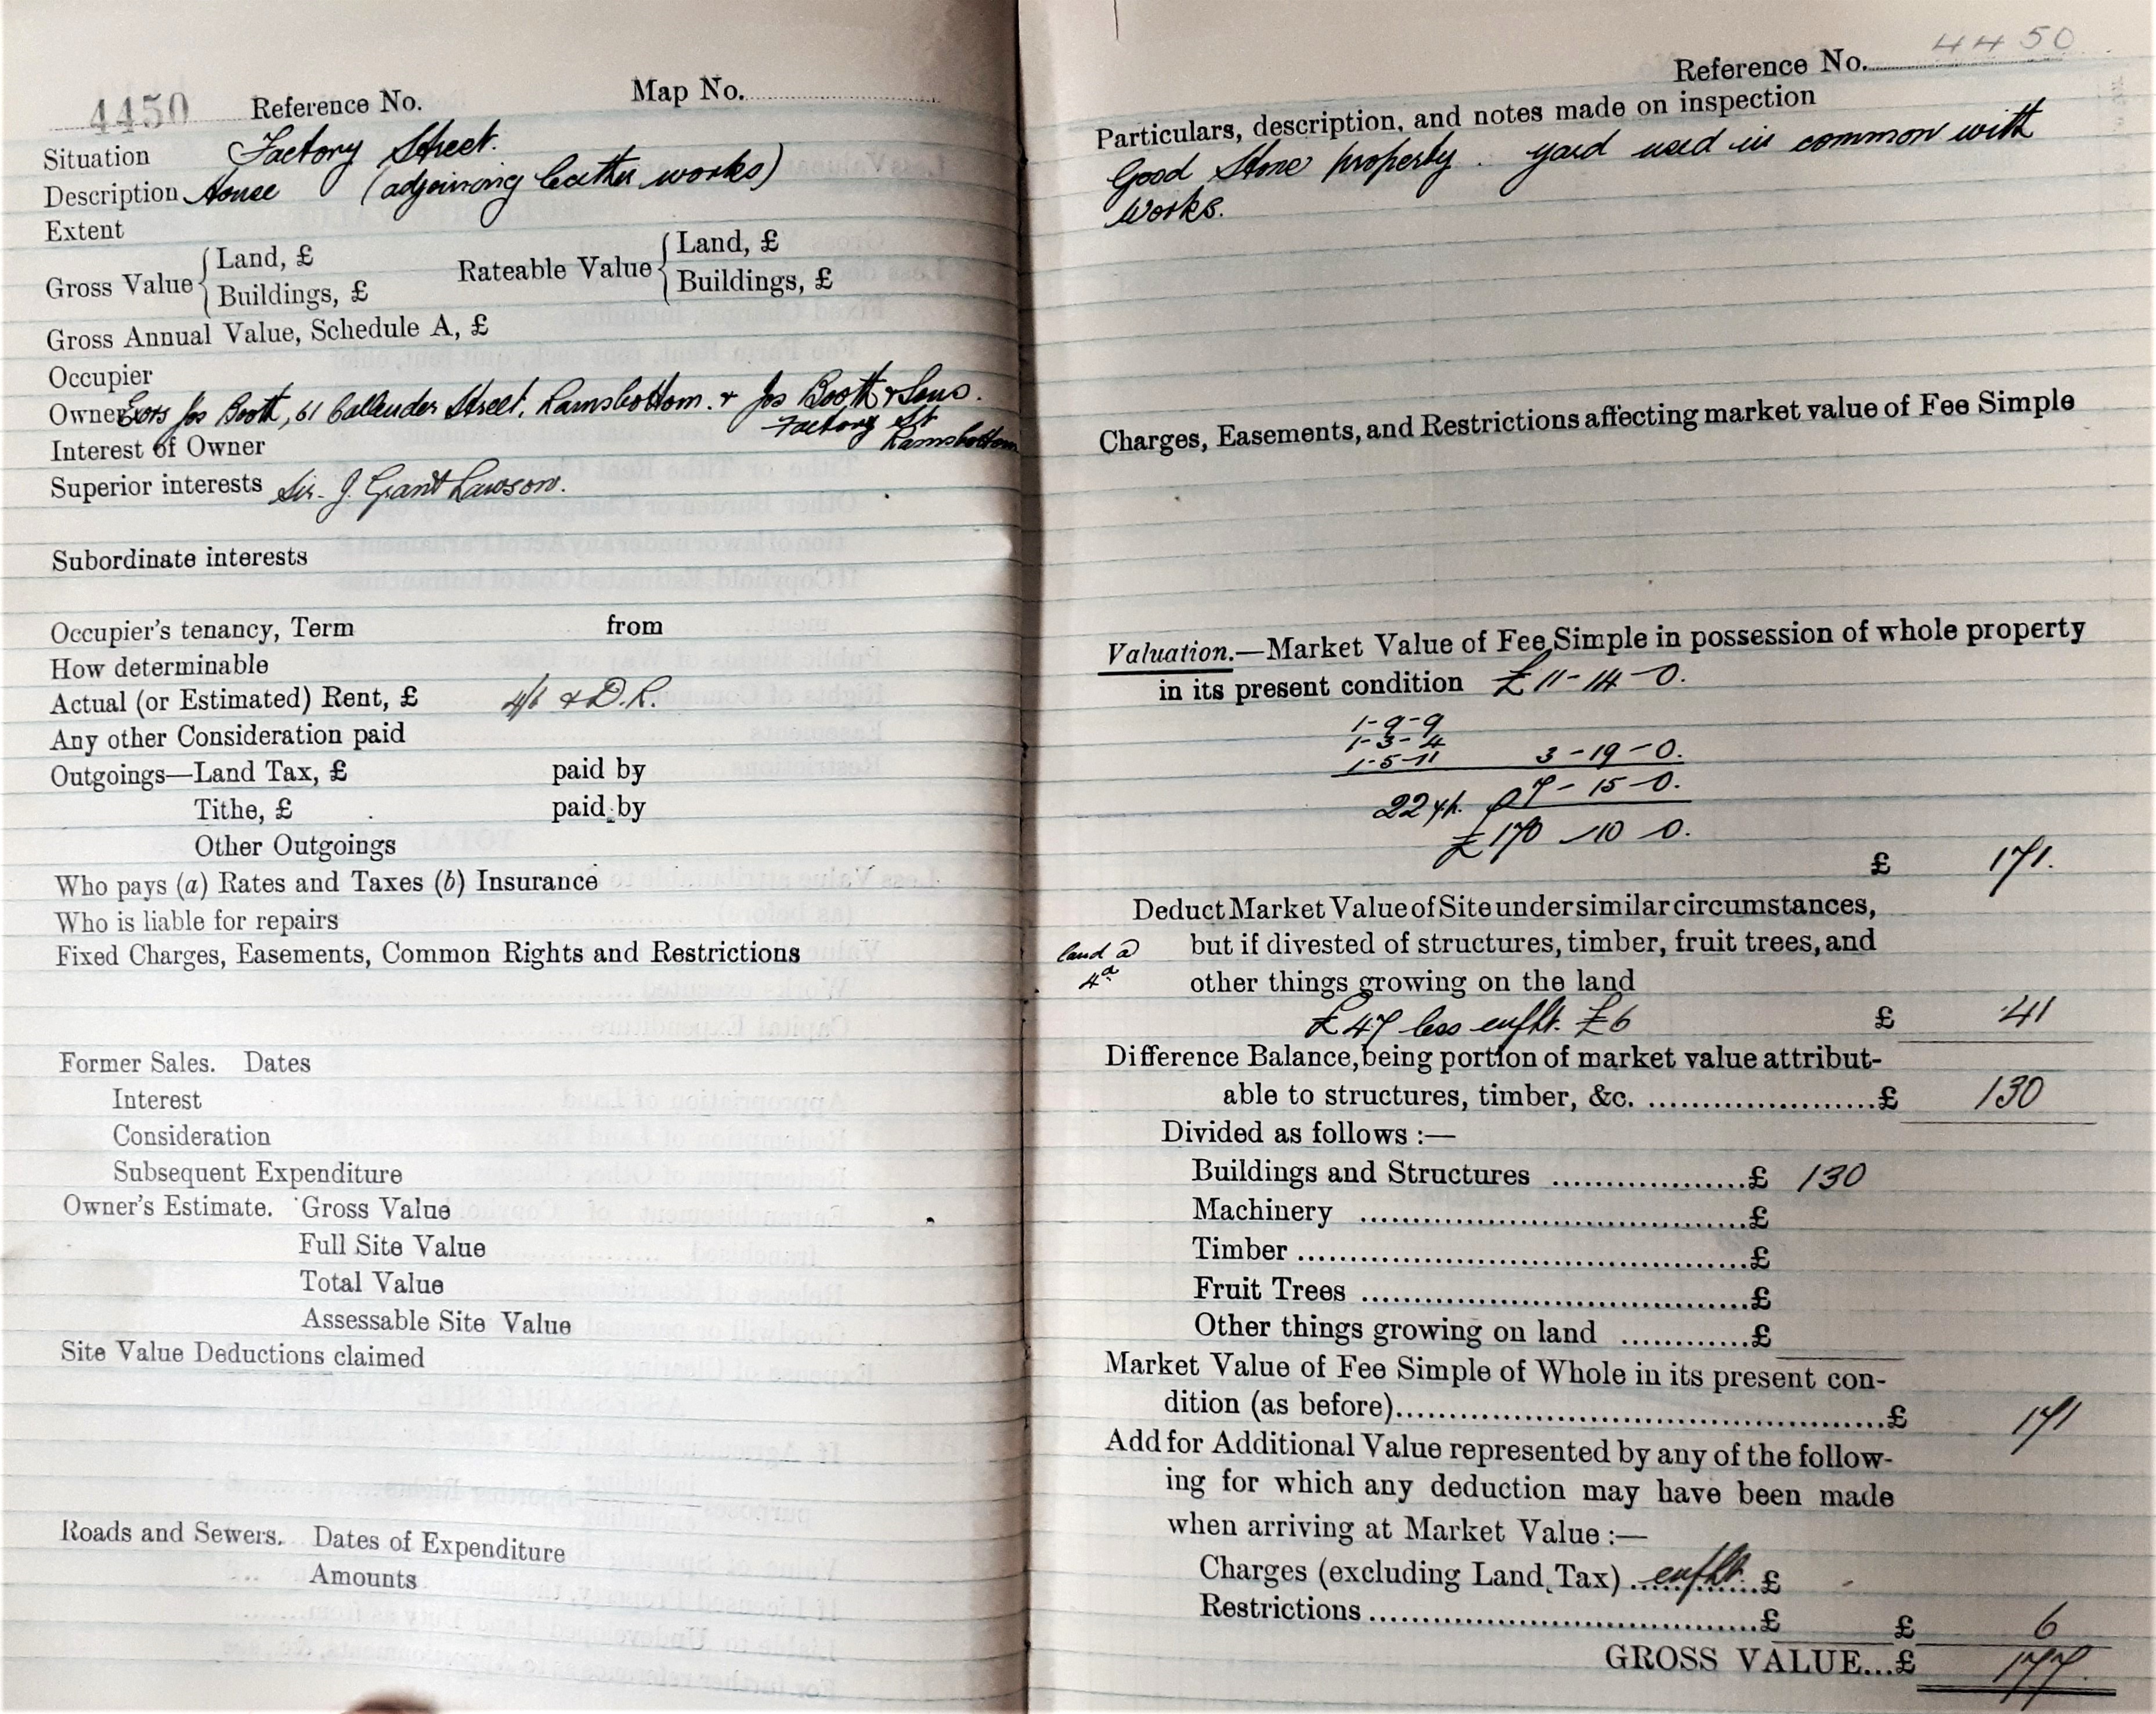 4450 Reference No. Map No.
Situation Factory Street.
Description House (adjoining leather works)
Extent
Gross Value { Land, £ Rateable Value { Land, £
Buildings, £ Buildings, £
Gross Annual Value, Schedule A, £
Occupier
Owner Exors Jos Booth, 61 Callender Street, Ramsbottom. & Jos Booth & Sons.
Factory St
Ramsbottom
Interest of Owner
Superior interests Sir J. Grant Lawson.
Subordinate interests
Occupier's tenancy, Term from
How determinable
Actual (or Estimated) Rent, £ 4/6 & D.R.
Any other Consideration paid
Outgoings—Land Tax, £ paid by
Tithe, £ paid by
Other Outgoings
Who pays (a) Rates and Taxes (b) Insurance
Who is liable for repairs
Fixed Charges, Easements, Common Rights and Restrictions
Former Sales. Dates
Interest
Consideration
Subsequent Expenditure
Owner's Estimate. Gross Value
Full Site Value
Total Value
Assessable Site Value
Site Value Deductions claimed
Roads and Sewers. Dates of Expenditure
Amounts
Reference No. 4450
Particulars, description, and notes made on inspection
Good Stone property. yard used in common with
works.
Charges, Easements, and Restrictions affecting market value of Fee Simple
Valuation.—Market Value of Fee Simple in possession of whole property
in its present condition £11-14-0.
1-9-9
1-3-4
1-5-11 3-19-0.
22 yp. 7-15-0.
£170-10-0.
£ 171.
Deduct Market Value of Site under similar circumstances,
land @ but if divested of structures, timber, fruit trees, and
4d other things growing on the land
£47 less enfht. £6 £ 41
Difference Balance, being portion of market value attribut-
able to structures, timber, &c. ........................£ 130
Divided as follows :—
Buildings and Structures ....................£ 130
Machinery ........................................£
Timber ..............................................£
Fruit Trees ........................................£
Other things growing on land ..............£
Market Value of Fee Simple of Whole in its present con-
dition (as before)..................................................£ 171
Add for Additional Value represented by any of the follow-
ing for which any deduction may have been made
when arriving at Market Value :—
Charges (excluding Land Tax) enfht. £
Restrictions ..........................................£ £ 6
GROSS VALUE...£ 177.